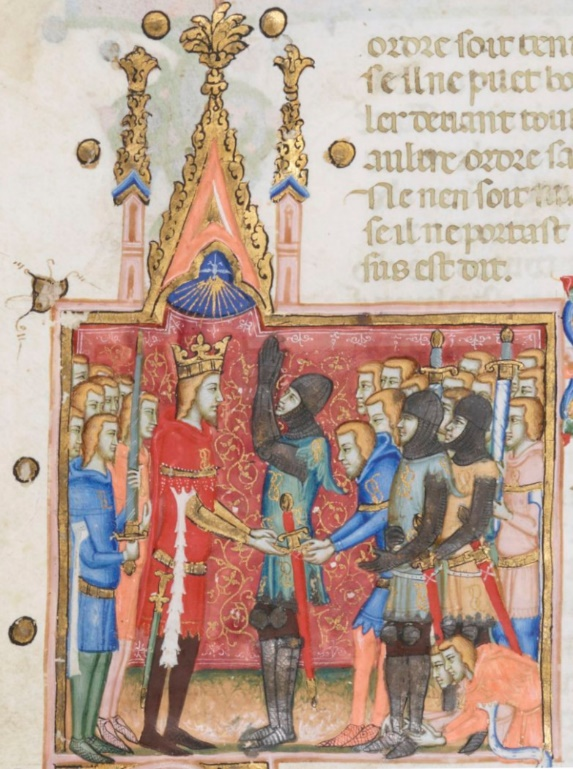 ordre soit teni
se il ne puet bo
ler deuant tout
aultre ordre sa
Ne nen soit
se il ne portast
sus est dit.